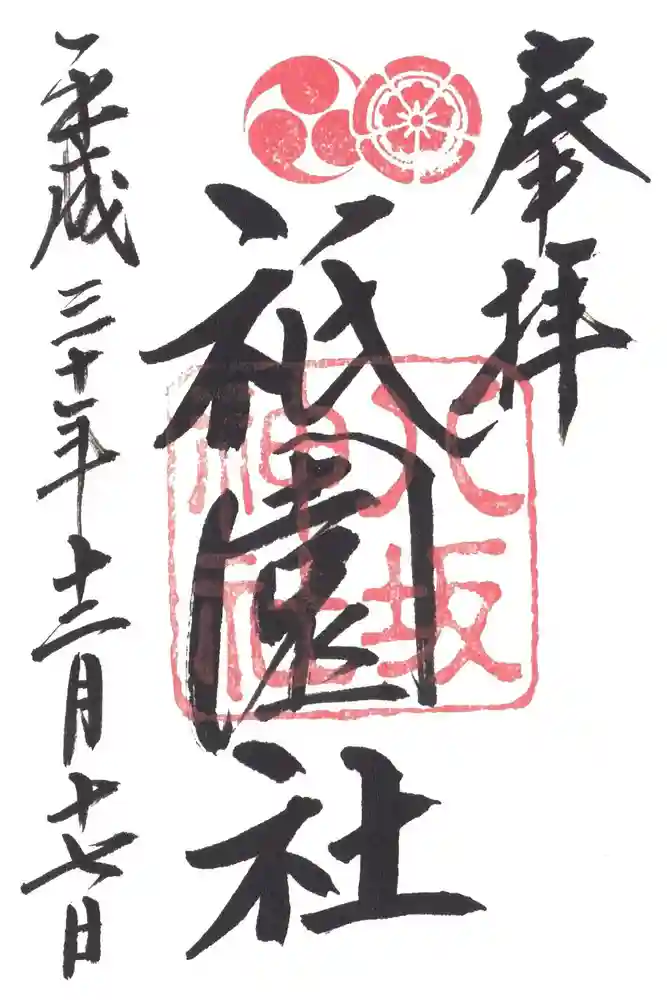 奉拝
祇園社
八坂
神社
平成三十年十二月十七日